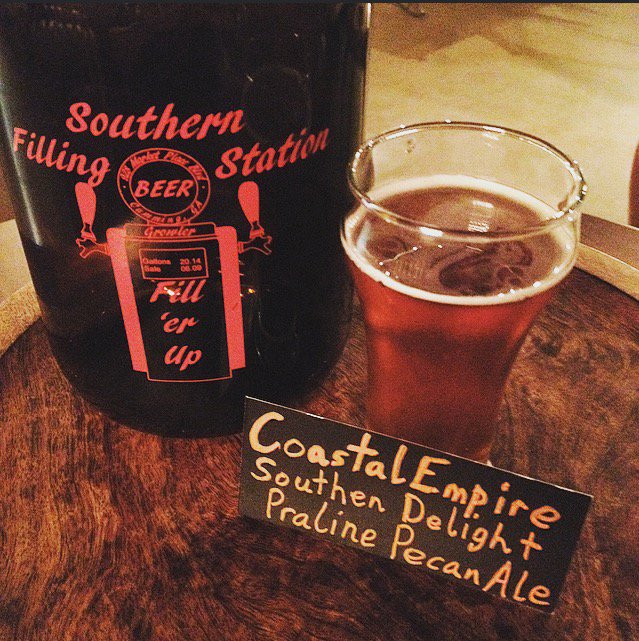 Southern
Filling Station
Market Place Blvd
BEER
Cumming, GA
Growler
Gallons 20.14
Sale 08.09
Fill
'er
Up
Coastal Empire
Southen Delight
Praline Pecan Ale